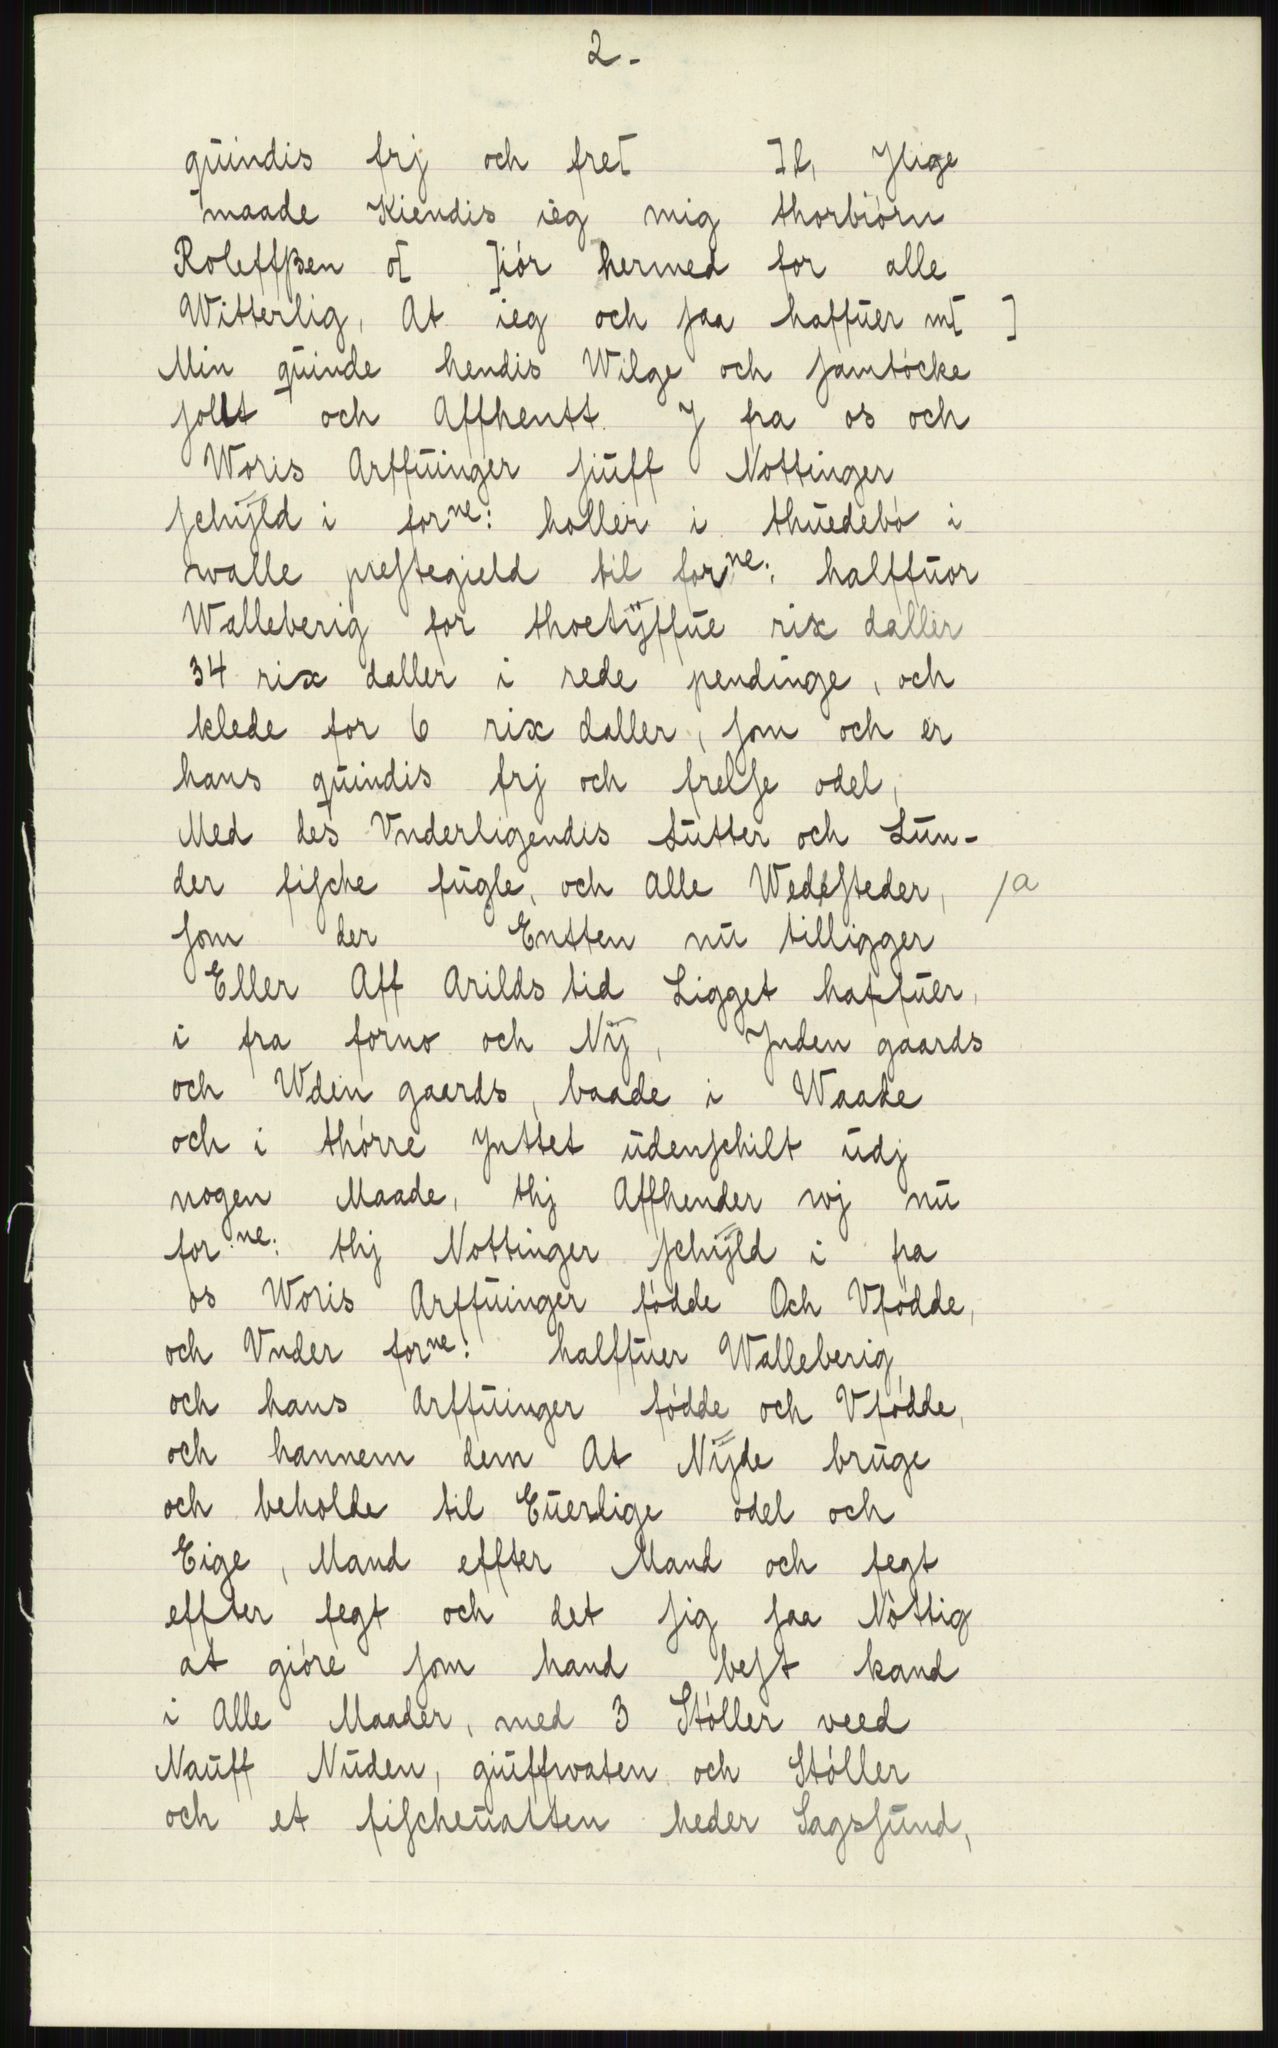 2.-
quindis frj och fre[ ]l, Jlige
maade Kiendis ieg mig thorbiørn
Roleffßen o[ ]iór hermed for alle
Witterlig, At ieg och saa haffuer m[ ]
Min quinde hendis Wilge och samtócke
sollt och Affhentt J fra os och
Woris Arffuinger siuff Nottinger
schÿld i forne: holler i thuedebó i
walle prestegield til forne: halffuor
Walleberig for thoetÿffue rix daller
34 rix daller i rede pendinge, och
klede for 6 rix daller, som och er
hans quindis frj och frelse odel,
Med des Vnderligendis Lutter och Lun-
der fische fugle, och alle Wedesteder, /a
som der Entten nu tilligger
Eller Aff Arilds tid Ligget haffuer,
i fra forno och Nÿ, Jnden gaards
och Wden gaards, baade i Waade
och i thórre Jnttet udenschilt udj
nogen Maade, thj Affhender wj nu
forne: thj Nottinger schÿld i fra
os Woris Arffuinger fódde Och Vfódde,
och Vnder forne: halffuer Walleberig
och hans Arffuinger fódde och Vfódde,
och hannem dem At Nÿde bruge
och beholde til Euerlige odel och
Eige, Mand effter Mand och fegt
effter fegt och det sig saa Nóttig
at gióre som hand best kand
i Alle Maader, med 3 Stóller veed
Nauff Nuden, giuffwaten och Stóller
och et fischeuatten heder Sagssund,